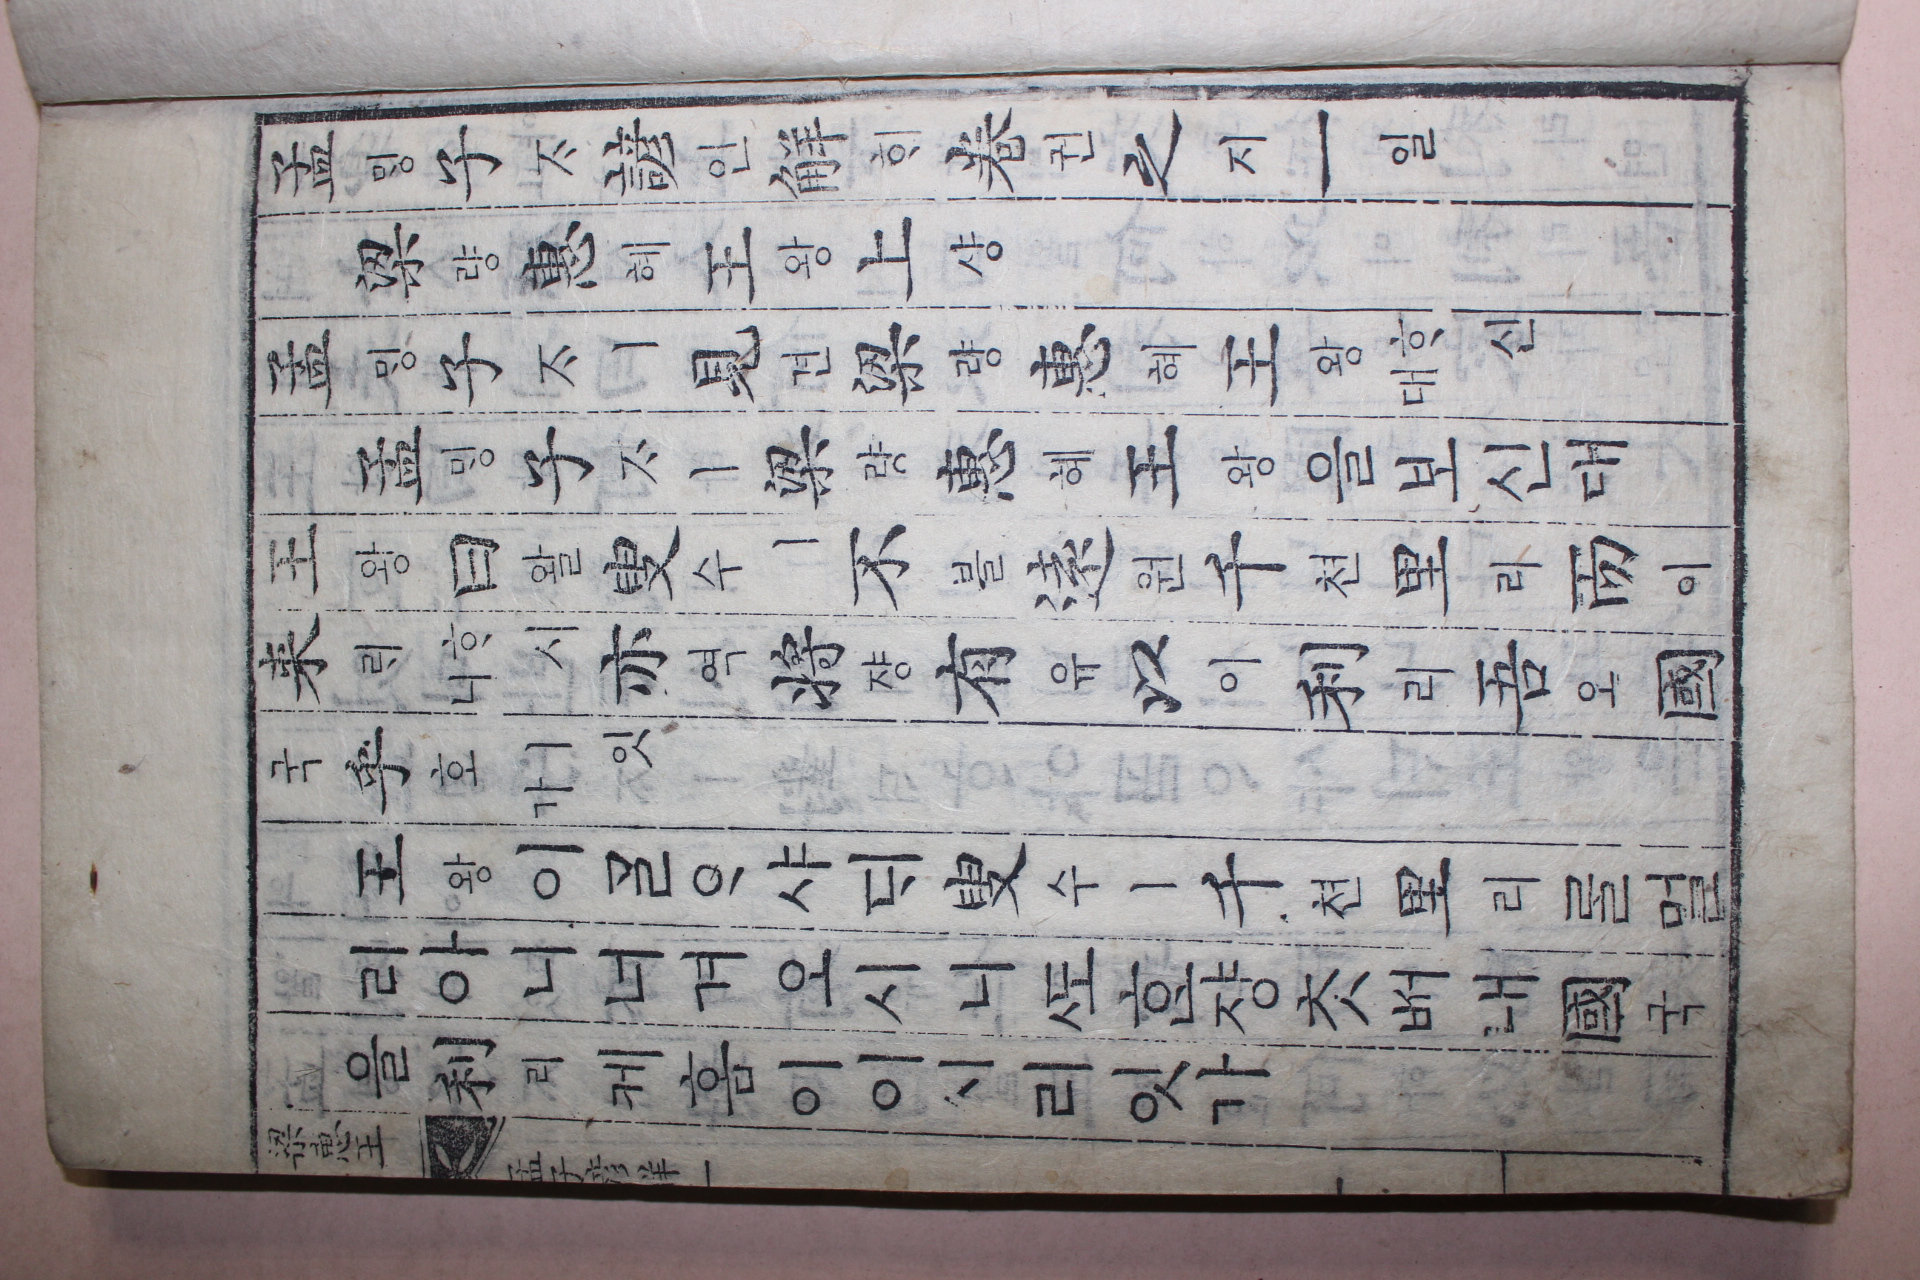 孟ᄆᆡᆼ子ᄌᆞ諺언解ᄒᆡ卷권之지一일
梁량惠혜王왕上샹
孟ᄆᆡᆼ子ᄌᆞㅣ見견梁량惠혜王왕ᄒᆞ신대
孟ᄆᆡᆼ子ᄌᆞㅣ梁량惠혜王왕을보신대
王왕曰왈叟수ㅣ不블遠원千쳔里리而이
来ᄅᆡᄒᆞ시니亦역將쟝有유以이利리吾오國
국乎호ㅣ잇가
王왕이ᄀᆞᆯᄋᆞ샤ᄃᆡ叟수ㅣ千쳔里리ᄅᆞᆯ멀
리아니너겨오시니ᄯᅩᄒᆞᆫ쟝ᄎᆞᆺᄡᅥ내國국
을利리케홈이이시리잇가
梁惠王 孟子諺解 一